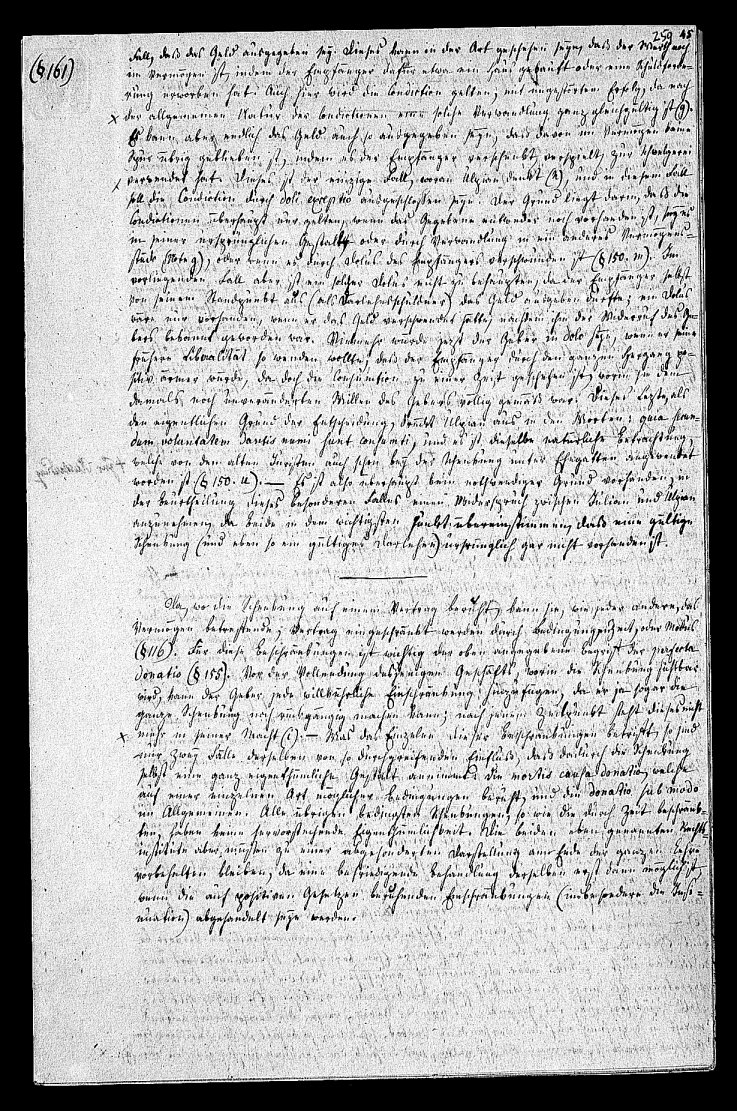 259 45
(§161)
Fall, daß das Geld ausgegeben sey. Dieses kann in der Art geschehen seyn, daß der Werth noch
im Vermögen ist, indem der Empfänger dafür etwa ein Haus gekauft oder eine Schuldforde-
rung erworben hat. Auch hier wird die Condiction gelten, mit ungestörtem Erfolg, da nach
der allgemeinen Natur der Condictionen eine solche Verwandlung ganz gleichgültig ist (g).
Es kann aber endlich das Geld auch so ausgegeben seyn, daß davon im Vermögen keine
Spur übrig geblieben ist, indem es der Empfänger verschenkt, verspielt, zur Schwelgerei
verwendet hat. Dieses ist der einzige Fall, woran Ulpian denkt (h), und in diesem Fall
soll die Condiction durch doli exceptio ausgeschlossen seyn. Der Grund liegt darin, daß die
Condictionen überhaupt nur gelten, wenn das Gegebene entweder noch vorhanden ist, sey es
in seiner ursprünglichen Gestalt, oder durch Verwandlung in ein anderes Vermögens-
stück (Note g), oder wenn es durch Dolus des Empfängers verschwunden ist (§ 150. m). Im
vorliegenden Fall aber ist ein solcher Dolus nicht zu behaupten, da der Empfänger selbst
von seinem Standpunkt aus (als Darlehensschuldner) das Geld ausgeben durfte; ein Dolus
wäre nur vorhanden, wenn er das Geld verschwendet hätte, nachdem ihm der Widerruf des Ge-
bers bekannt geworden war. Vielmehr würde jetzt der Geber in dolo seyn, wenn er seine
frühere Liberalität so wenden wollte, daß der Empfänger durch den ganzen Hergang po-
sitiv ärmer würde, da doch die Consumtion zu einer Zeit geschehen ist, worin sie dem
damals noch unveränderten Willen des Gebers völlig gemäß war. Dieses Letzte, als
den eigentlichen Grund der Entscheidung, drückt Ulpian aus in den Worten: quia secun-
dum voluntatem dantis numi sunt consumti, und es ist dieselbe natürliche Betrachtung,
welche von den alten Juristen auch schon bey der Schenkung unter Ehegatten angewendet
worden ist (§ 150. u). — Es ist also überhaupt kein nothwendiger Grund vorhanden, in
der Beurtheilung dieses besonderen Falles einen Widerspruch zwischen Julian und Ulpian
anzunehmen, da beide in dem wichtigsten Punkt übereinstimmen, daß eine gültige
Schenkung (und eben so ein gültiges Darlehen) ursprünglich gar nicht vorhanden ist.
Da, wo die Schenkung auf einem Vertrag beruht, kann sie, wie jeder andere, das
Vermögen betreffende, Vertrag eingeschränkt werden durch Bedingungen, Zeit, oder Modus
(§116). Für diese Beschränkungen ist wichtig der oben angegebene Begriff der perfecta
donatio (§ 155). Vor der Vollendung desjenigen Geschäfts, worin die Schenkung sichtbar
wird, kann der Geber jede willkührliche Einschränkung hinzufügen, da er ja sogar die
ganze Schenkung noch rückgängig machen kann; nach jenem Zeitpunkt steht dieses nicht
mehr in seiner Macht (i). — Was das Einzelne dieser Beschränkungen betrifft, so sind
nur zwey Fälle derselben von so durchgreifendem Einfluß, daß dadurch die Schenkung
selbst eine ganz eigenthümliche Gestalt annimmt: die mortis causa donatio, welche
auf einer einzelnen Art möglicher Bedingungen beruht, und die donatio sub modo
im Allgemeinen. Alle übrigen bedingten Schenkungen, so wie die durch Zeit beschränk-
ten, haben keine hervorstechende Eigenthümlichkeit. Die beiden eben genannten Rechts-
institute aber, müssen zu einer abgesonderten Darstellung am Ende der ganzen Lehre
vorbehalten bleiben, da eine befriedigende Behandlung derselben erst dann möglich ist,
wenn die auf positiven Gesetzen beruhenden Einschränkungen (insbesondere die Insi-
nuation) abgehandelt seyn werden.